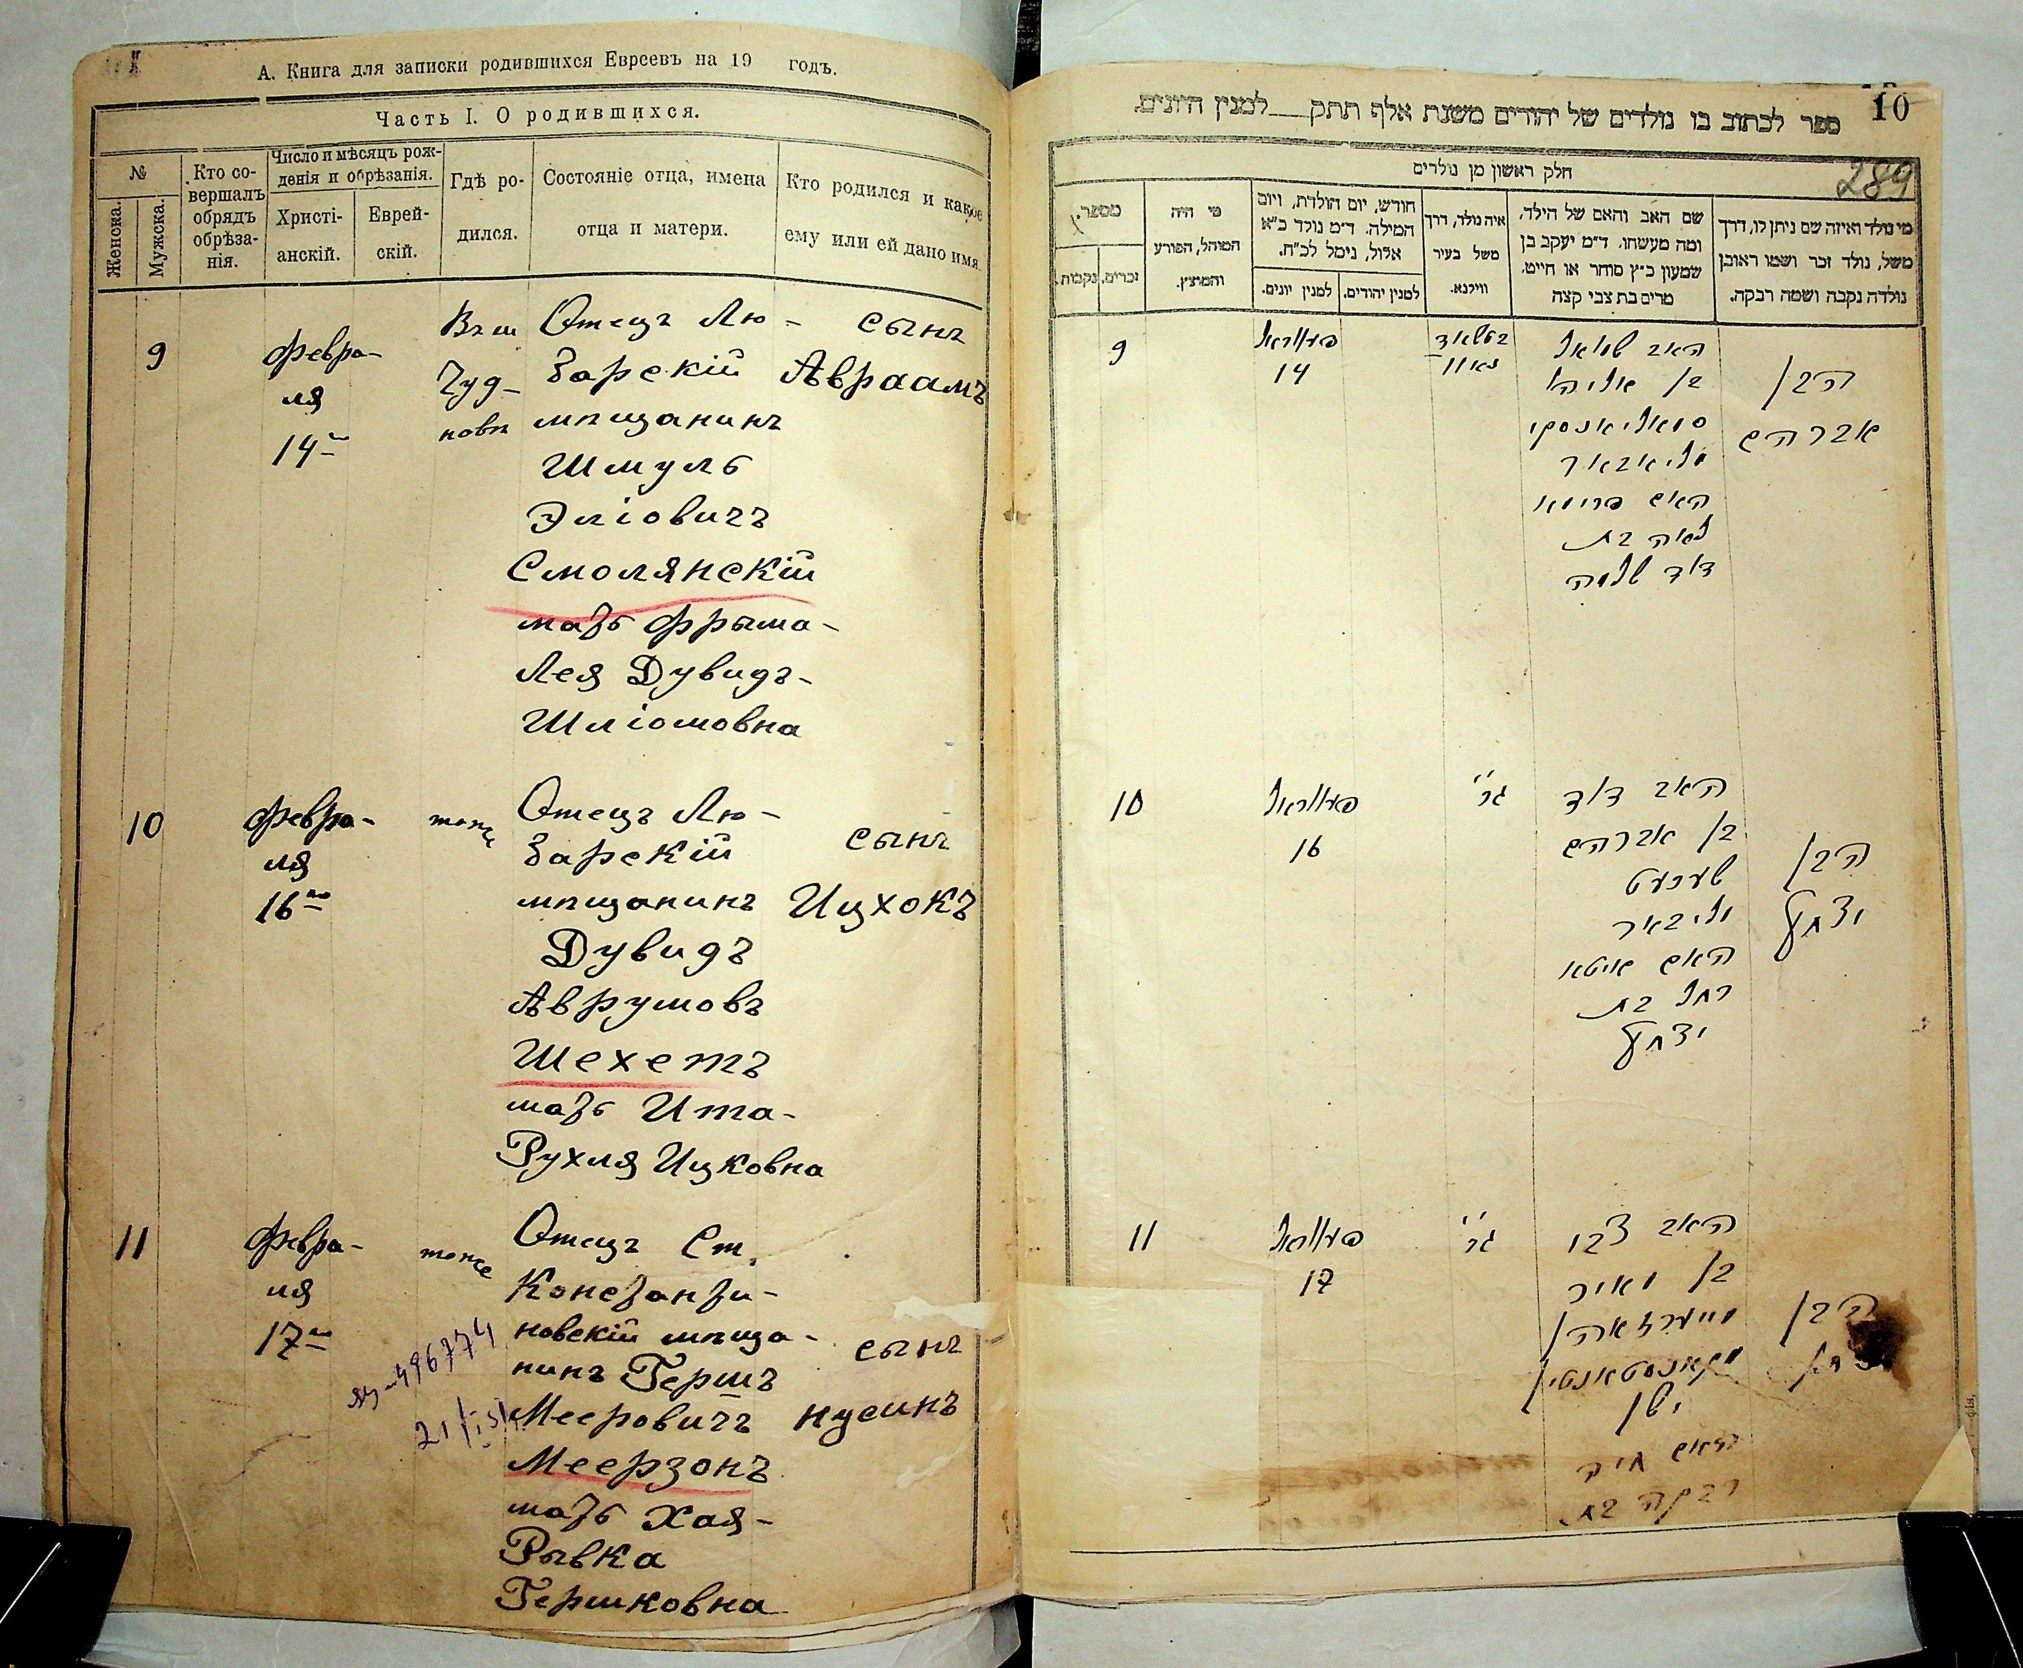 А. Книга для записки родившихся Евреевъ на 19 годъ.
Часть I. О родившихся.
№
Женска.
Мужска.
Кто со-
вершалъ
обрядъ
обрѣза-
нія.
Число и мѣсяцъ рож-
денія и обрѣзанія.
Христі-
анскій.
Еврей-
скій.
Гдѣ ро-
дился.
Состояніе отца, имена
отца и матери.
Кто родился и какое
ему или ей дано имя.
9
Февра-
ля
14
Въ м
Чуд-
новѣ
Отецъ Лю-
барскій
мѣщанинъ
Шмуль
Эліовичъ
Смолянскій
мать Фрыма-
Лея Дувидъ-
Шліомовна
сынъ
Авраамъ
10
Февра-
ля
16
тоже
Отецъ Лю-
барскій
мѣщанинъ
Дувидъ
Аврумовъ
Шехетъ
мать Ита-
Рухля Ицковна
сынъ
Ицхокъ
11
Февра-
ля
17
тоже
Отецъ Ст.
Константи-
новскій мѣща-
нинъ Гершъ
Мееровичъ
Меерзонъ
мать Хая-
Рывка
Гершковна
сынъ
Нусинъ
10
289
ספר לכתוב בו נולדים של יהודים משנת אלף תתק למנין היונים.
חלק ראשון מן נולדים
מספר.
זכרים.
נקבות.
מי היה
המוהל, הפורע
והמוצץ.
חודש, יום הולדת, ויום
המילה. ד״מ נולד כ״א
אלול, נימל לכ״ח.
למנין יונים.
למנין יהודים.
איה נולד, דרך
משל בעיר
ווילנא.
שם האב והאם של הילד,
ומה מעשהו. ד״מ יעקב בן
שמעון כ״ץ סוחר או חייט.
מרים בת צבי קצה
מי נולד ואיזה שם ניתן לו, דרך
משל, נולד זכר ושמו ראובן
נולדה נקבה ושמה רבקה.
9
פעווראל
14
האב שמואל
בן אליהו
סמאליאנסקי
מליובאר
האם פרימא
לאה בת
דוד שלמה
הבן
אברהם
10
פעווראל
16
גם
האב דוד
בן אברהם
שעכעט
מליבאר
האם איטא
רחל בת
יצחק
הבן
יצחק
11
פעווראל
17
גם
האב צבי
בן מאיר
מייערזאהן
מקאנסטאנטין
ישן
האם חיה
רבקה בת
הבן